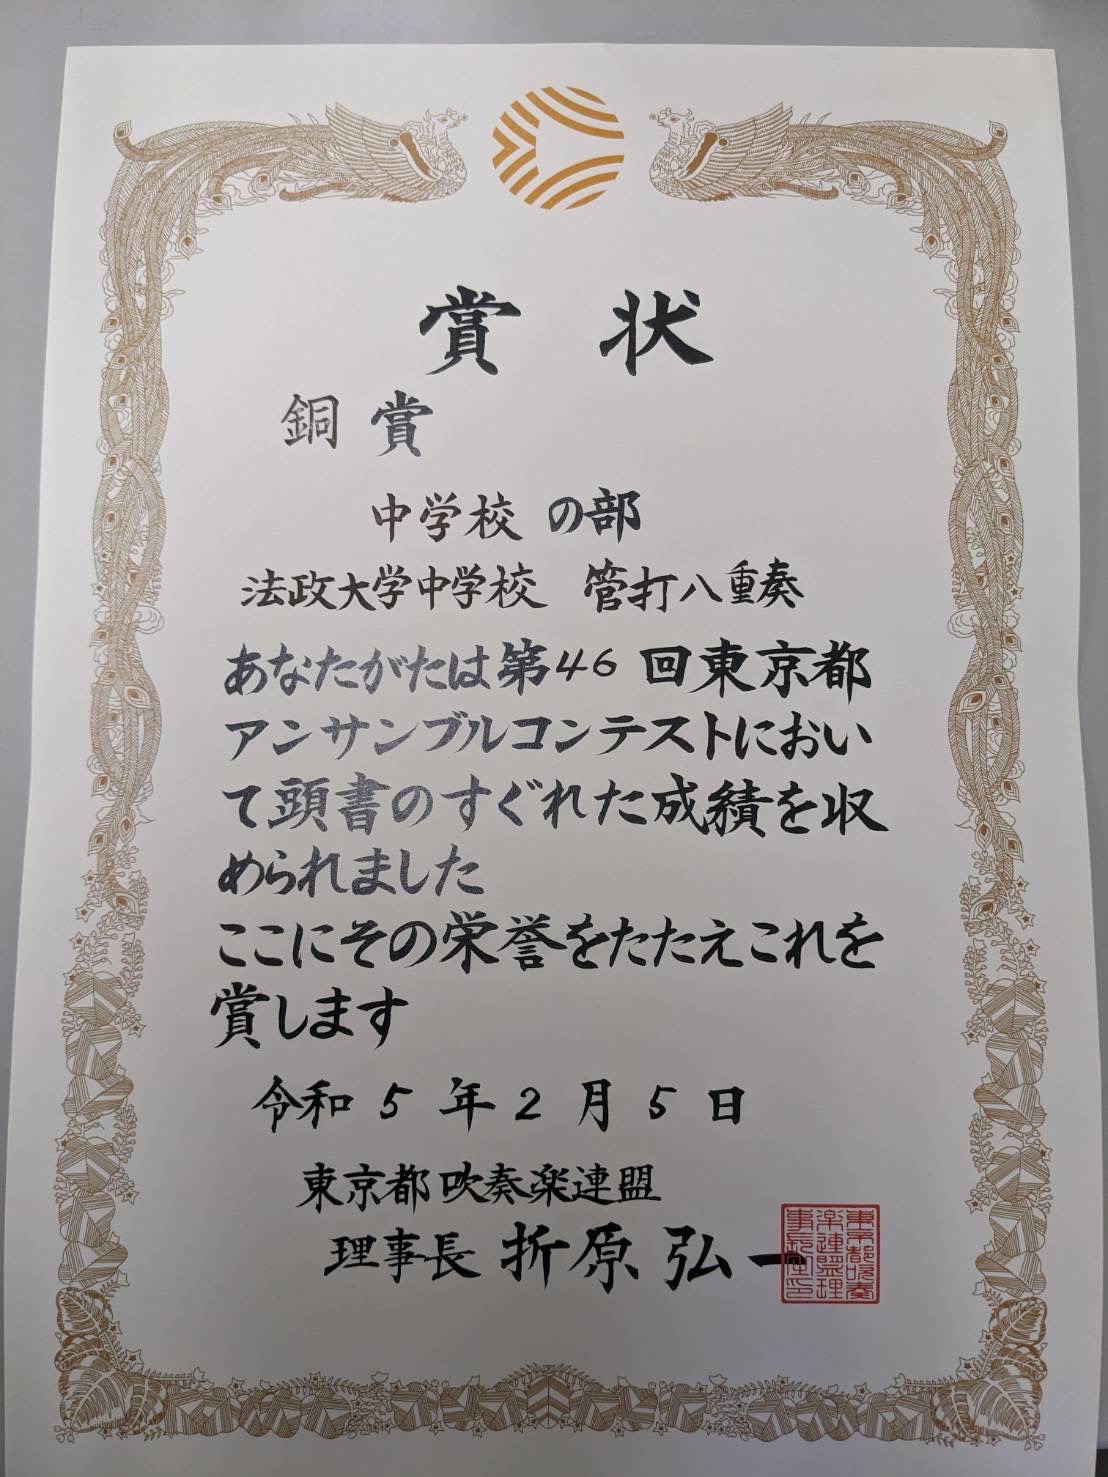 賞状
銅賞
中学校の部
法政大学中学校 管打八重奏
あなたがたは第46回東京都
アンサンブルコンテストにおい
て頭書のすぐれた成績を収
められました
ここにその栄誉をたたえこれを
賞します
令和5年2月5日
東京都吹奏楽連盟
理事長 折原弘一
東京都吹奏
楽連盟理
事長之印